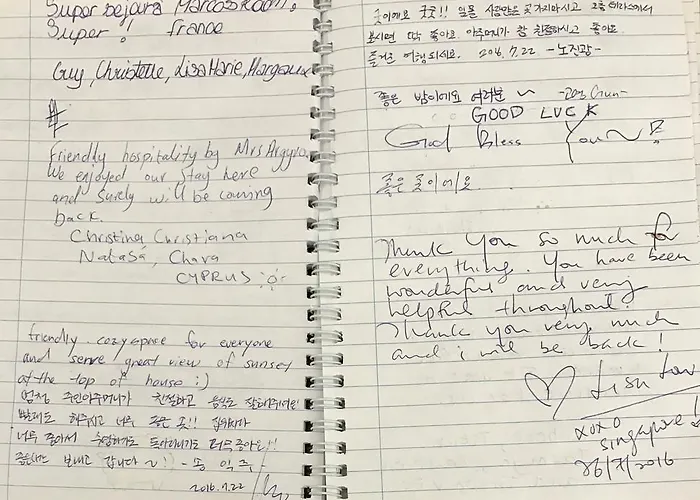 Super sejour à Marcos Room.
Super !! france
Guy, Christelle, Lisa Marie, Margaux
Friendly hospitality by Mrs Argyro.
We enjoyed our stay here
and surely will be coming
back.
Christina Christiana
Natasa, Chara
CYPRUS
friendly cozy space for everyone
and serve great view of sunset
at the top of house :)
엄청 주인아주머니가 친절하고 음식도 잘해주세요!
빨래도 해주시고 너무 좋은 곳!!
너무 좋아서
보내고 갑니다 ~! - 송 익주
2016.7.22
곳이에요 굿굿!!
보시면 딱 좋아요. 아주머니가 참 친절하시고 좋아요.
즐거운 여행되시요. 2016.7.22 -노진광-
좋은 밤이에요 여러분 ~
GOOD LUCK
God Bless You~!
좋은 곳이에요.
Thank you so much for
everything. You have been
wonderful and very
helpful throughout!
Thank you very much
and i will be back!
Lisa
xoxo
Singapore!
26/7/2016